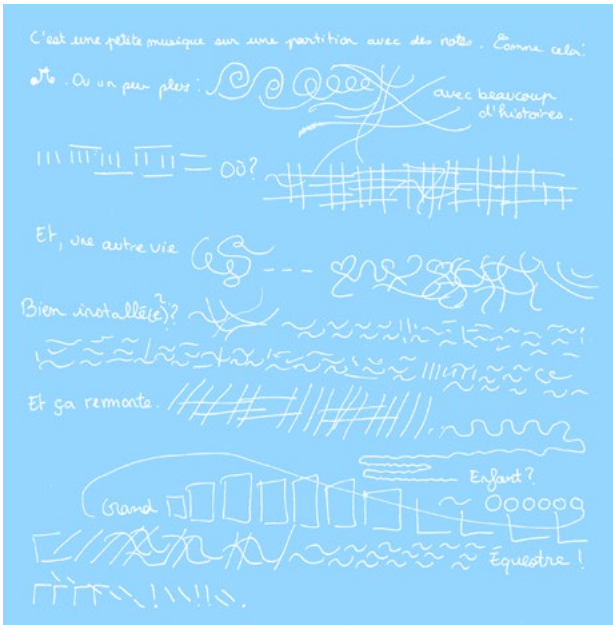 C'est une petite musique sur une partition avec des notes. Comme cela:
. Ou un peu plus:
avec beaucoup
d'histoires.
Où?
Et, une autre vie
Bien installé(e)?
Et ça remonte.
Enfant?
Grand
Équestre!